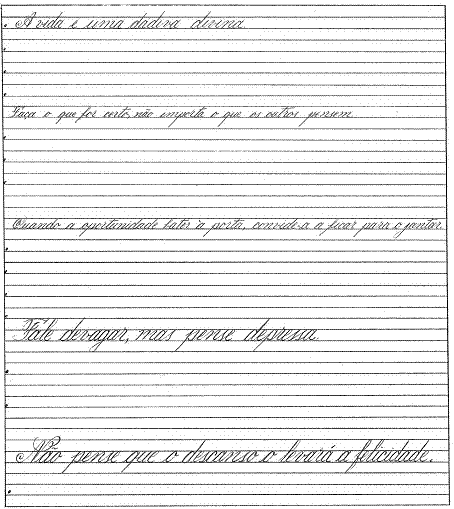 A vida é uma dádiva divina.
Faça o que for certo, não importa o que os outros pensem.
Quando a oportunidade bater à porta, convide-a a ficar para o jantar.
Fale devagar, mas pense depressa.
Não pense que o descanso o levará a felicidade.